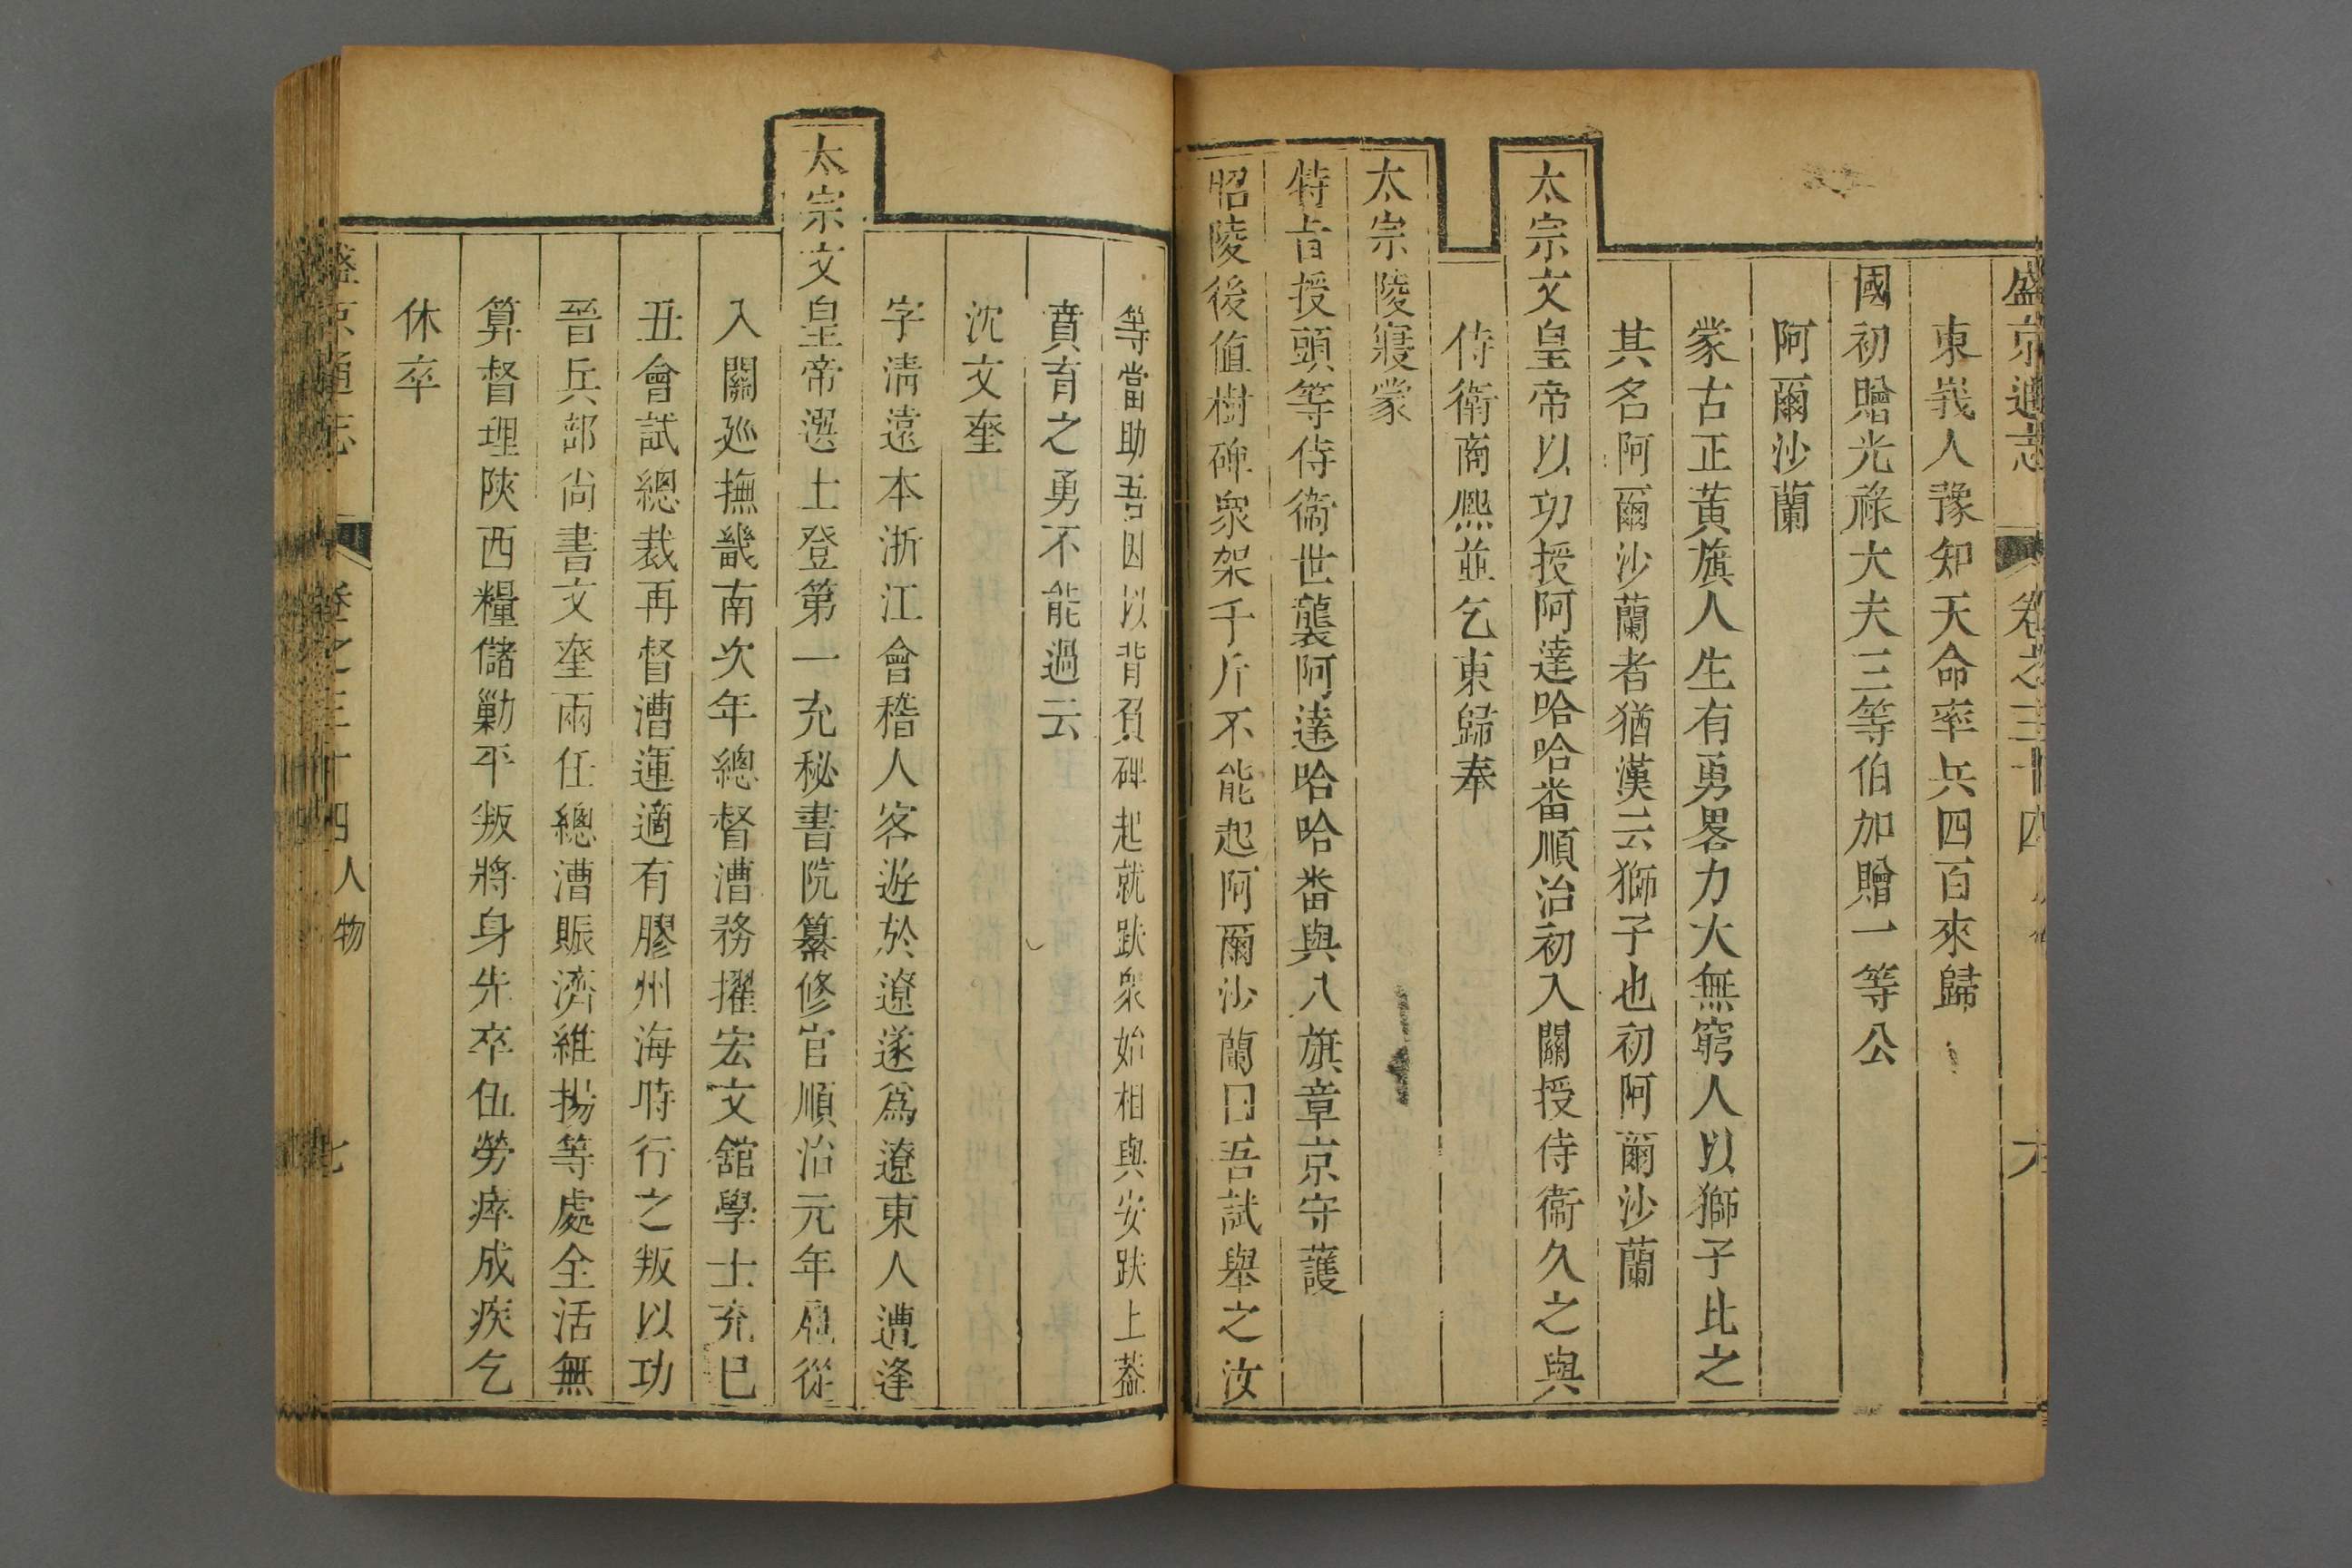 盛京通志 卷之三十四 六
東莪人豫知天命率兵四百來歸
國初贈光祿大夫三等伯加贈一等公
阿爾沙蘭
蒙古正黃旗人生有勇畧力大無窮人以獅子比之
其名阿爾沙蘭者猶漢云獅子也初阿爾沙蘭
太宗文皇帝以功授阿達哈哈番順治初入關授侍衛久之與
侍衛商熈並乞東歸奉
太宗陵寢蒙
特旨授頭等侍衛世襲阿達哈哈番與八旗章京守護
昭陵後値樹碑衆架千斤不能起阿爾沙蘭曰吾試舉之汝
等當助吾因以背負碑起就趺衆始相與安趺上葢
賁育之勇不能過云
沈文奎
字淸遠本浙江會稽人客遊於遼遂爲遼東人遭逢
太宗文皇帝選士登第一充秘書院纂修官順治元年扈從
入關廵撫畿南次年總督漕務擢宏文舘學士充巳
丑會試總裁再督漕運適有膠州海時行之叛以功
晉兵部尙書文奎兩任總漕賑濟維揚等處全活無
算督理陝西糧儲勦平叛將身先卒伍勞瘁成疾乞
休卒
盛京通志 卷之三十四 人物 七